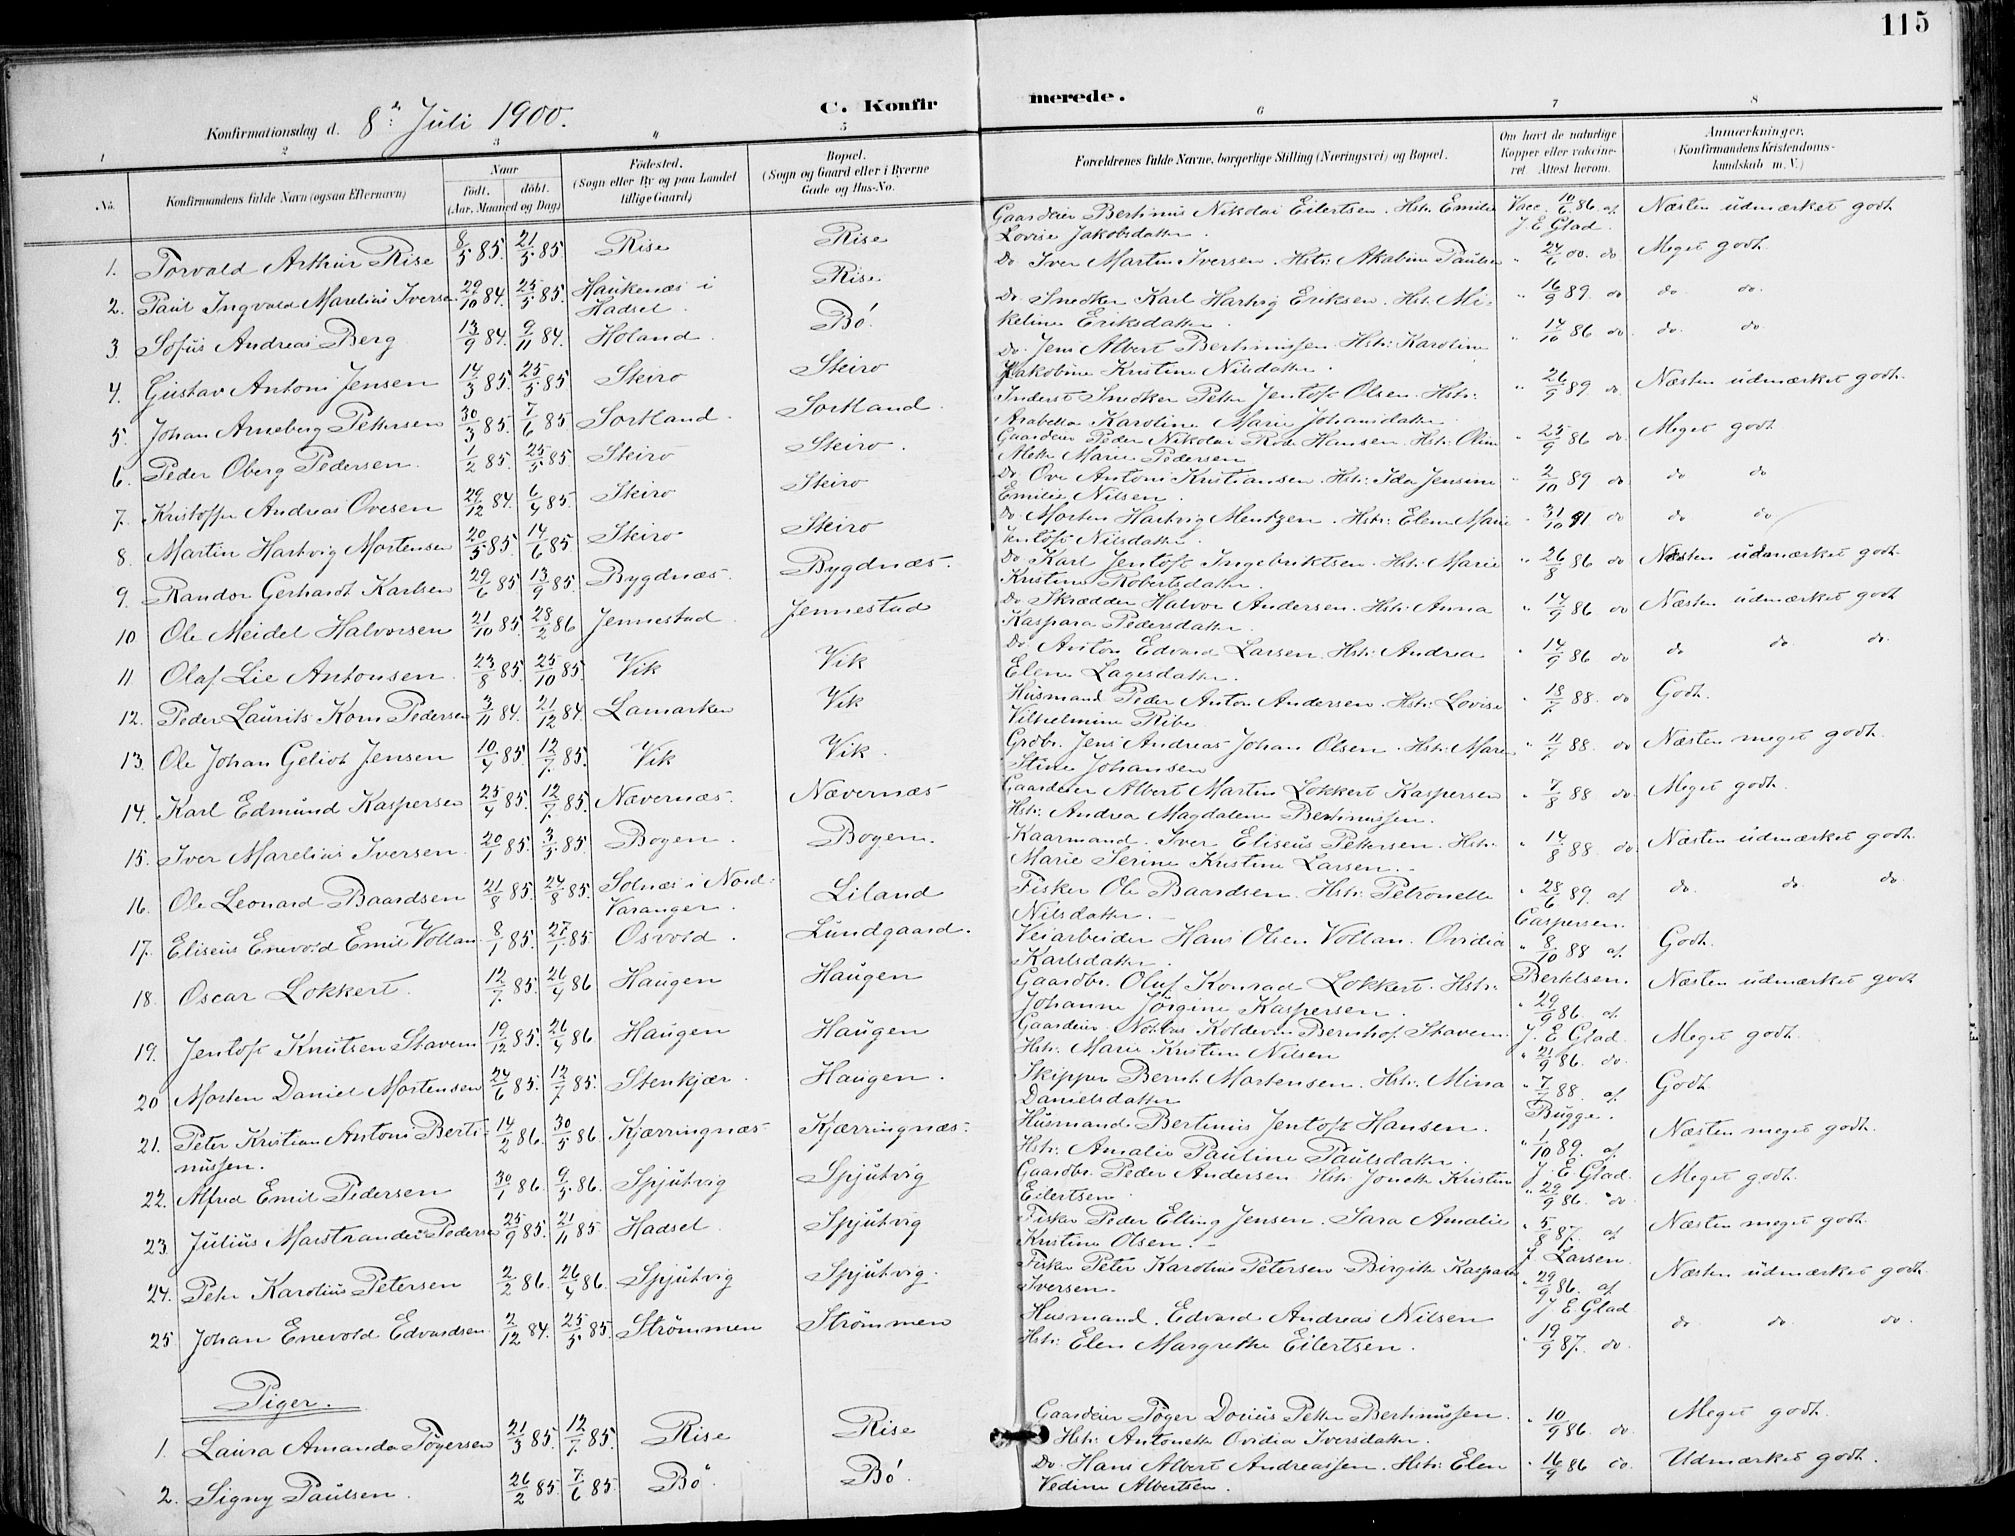 115
C. Konfirmerede.
Konfirmationsdag d. 8de Juli 1900.
1 2 3 4 5 6 7 8
No. Konfirmandens fulde Navn (ogsaa Efternavn) Naar født. døbt. (Aar, Maaned og Dag) Fødested. (Sogn eller By og paa Landet tillige Gaard) Bopæl. (Sogn og Gaard eller i Byerne Gade og Hus-No. Forældrenes fulde Navne, borgerlige Stilling (Næringsvei) og Bopæl. Om havt de naturlige Kopper eller vaccineret Attest herom. Anmærkninger. (Konfirmandens Kristendomskundskab m. V.)
1. Torvald Arthur Rise 8/5 85. 21/5 85. Rise Rise Gaardeier Bertinus Nikolai Eilertsen. Hstr: Emilie Lovise Jakobsdatter. Vacc. 10/6 86 af J. E. Glad. Næsten udmærket godt
2. Paul Ingvald Marelius Iversen 29/10 84. 25/5 85. Haukenæs i Hadsel. Rise Do Iver Martin Iversen. Hstr: Akabine Paulsen " 24/6 00. do Meget godt.
3 Sofus Andreas Berg 13/9 84. 9/11 84. Holand. Bø. Do. Snedker Karl Hartvig Eriksen. Hstr: Mikeline Eriksdatter. " 16/9 89. do do. do.
4. Gustav Antoni Jensen 14/3 85. 25/5 85 Steiro Steiro Do. Jens Albert Bertinussen. Hstr: Karoline Jakobine Kristine Nilsdatter. " 14/10 86 do do. do.
5. Johan Arneberg Petersen 30/3 85. 7/6 85 Sortland. Sortland. Inderst Snedker Peter Jentoft Olsen. Hstr: Arabella Karoline Marie Johansdatter. " 26/9 89. do Næsten udmærket godt.
6. Peder Oberg Pedersen. 1/2 85. 25/5 85 Steiro Steiro. Gaardeier Peder Nikolai Rode Hansen. Hstr: Oline Mette Marie Pedersen " 25/9 86 do. Meget godt
7. Kristoffer Andreas Ovesen 29/12 84. 6/4 85 Steiro Steiro Do. Ove Antoni Kristiansen. Hstr: Ida Jensine Emilie Nilsen. " 2/10 89 do do do
8. Martin Hartvig Mortensen 20/5 85. 14/6 85. Steiro Steiro Do. Morten Hartvig Mentzen. Hstr: Elen Marie Jentoft Nilsdatter. " 31/10 91 do do do
9. Randor Gerhardt Karlsen 29/6 85 13/9 85. Bygdnæs. Bygdnæs. Do Karl Jentoft Ingebriktsen. Hstr: Marie Kristine Robertsdatter. " 26/8 86 do Næsten udmærket godt.
10 Ole Meidel Halvorsen 21/10 85. 28/2 86 Jennestad. Jennestad Do Skrædder Halvor Andersen. Hstr: Anna Kaspara Pedersdatter. " 14/9 86 do Næsten udmærket godt
11 Olaf Lie Antonsen 23/8 85. 25/10 85 Vik Vik Do Anton Edvard Larsen. Hstr: Andrea Elene Lagesdatter. " 14/9 86 do do do. do.
12. Peder Laurits Korn Pedersen 3/11 84. 21/12 84. Lamarken Vik Husmand Peder Anton Andersen. Hstr: Lovise Vilhelmine Ribe " 18/7 88. do Godt.
13. Ole Johan Geliot Jensen 10/4 85. 12/7 85. Vik Vik. Grdbr. Jens Andreas Johan Olsen. Hstr: Maren Stine Johansen " 11/7 88. do Næsten meget godt.
14. Karl Edmund Kaspersen 25/4 85. 12/7 85. Nævernæs. Nævernæs Gaardeier Albert Martin Lokkert Kaspersen Hstr: Andrea Magdalene Bertinussen. " 7/8 88 do. Meget godt.
15. Iver Marelius Iversen 20/1 85. 3/5 85. Bogen. Bogen. Kaarmand. Iver Eliseus Petersen. Hstr: Marie Serine Kristine Larsen. " 14/8 88. do. Næsten udmærket godt.
16. Ole Leonard Baardsen 21/8 85. 24/8 85. Solnæs i Nord-Varanger. Liland Fisker Ole Baardsen. Hstr: Petronelle Nilsdatter. " 28/6 89. af Caspersen. do. do. do.
17. Eliseus Enevold Emil Vollan 8/1 85. 27/1 85. Osvold. Lundgaard. Veiarbeider Hans Olsen Vollan. Ovidia Karlsdatter. " 8/10 88 af Bertelsen. Godt.
18. Oscar Lokkert. 12/7 85. 26/4 86 Haugen Haugen Gaardbr. Oluf Konrad Lokkert. Hstr: Johanne Jørgine Kaspersen. " 29/9 86. af J. E. Glad. Næsten udmærket godt
19. Jentoft Knutsen Skavem 19/12 85. 26/4 86 Haugen Haugen Gaardeier. Koldevin Bernhof. Skavem. Hstr: Marie Kristine Nilsen " 21/9 86. do. Meget godt.
20 Morten Daniel Mortensen 24/6 85. 12/7 85. Stenkjær. Haugen. Skipper Bernt Mortensen. Hstr: Mina Danielsdatter " 7/7 88. af Bugge. Godt
21. Peter Kristian Antoni Bertinussen. 14/2 86. 30/5 86. Kjærringnæs Kjærringnæs Husmand Bertinus Jentoft Hansen. Hstr: Amalie Pauline Paulsdatter. " 1/10 89. af J. E. Glad. Næsten meget godt.
22. Alfred Emil Pedersen 30/1 86. 9/5 86. Spjutvig Spjutvig Gaardbr. Peder Andersen Hstr: Jonette Kristine Eilertsen. " 29/9 86. do Meget godt.
23. Julius Marstrander Pedersen 25/9 85. 21/11 85 Hadsel. Spjutvig Fisker Peder Elling Jensen. Sara Amalie Kristine Olsen. " 5/8 87. af J. Larsen. Næsten meget godt.
24. Peter Karolius Petersen 2/2 86. 26/4 86. Spjutvig Spjutvig. Fisker Peter Karolius Petersen Birgitte Kaspara Iversen. " 29/9 86. af J. E. Glad Næsten udmærket godt.
25 Johan Enevold Edvardsen 2/12 84. 25/5 85. Strømmen Strømmen Husmand. Edvard Andreas Nilsen Hstr: Elen Margrethe Eilertsen. " 19/9 87. do. do do. do.
Piger.
1. Laura Amanda Tøgersen 21/3 85. 12/7 85. Rise Rise Gaardeier Tøger Dorius Petter Bertinussen. Hstr: Antonette Ovidia Iversdatter. " 10/9 86. do. Meget godt.
2. Signy Paulsen. 26/2 85. 7/6 85. Bø. Bø. Do. Hans Albert Andreassen. Hstr: Elen Vedine Albertsen. " 16/9 86 do. Udmærket godt.